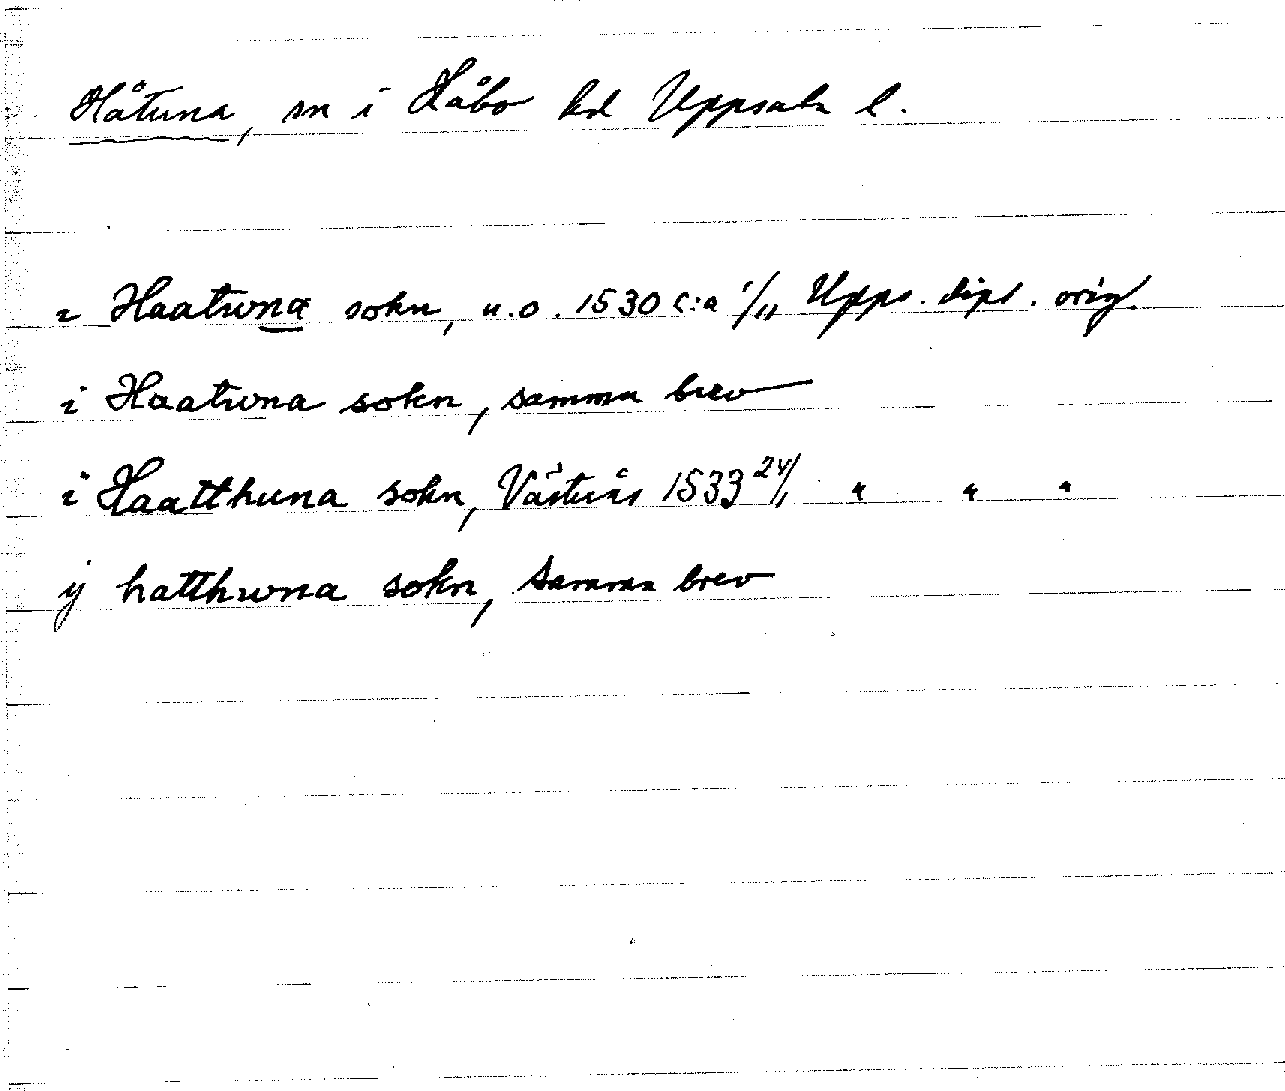 Håtuna, sn i Håbo hd Uppsala l.
i Haatwna sokn, u.o. 1530 c:a 1/11 Upps. dipl. orig.
i Haatwna sokn, samma brev
i Haatthuna sokn, Västerås 1533 24/1 " " "
ij hatthwna sokn, samma brev